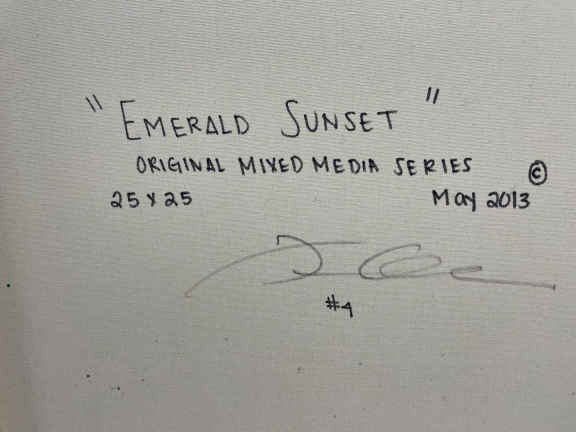 "EMERALD SUNSET"
ORIGINAL MIXED MEDIA SERIES ©
25 x 25 May 2013
#4